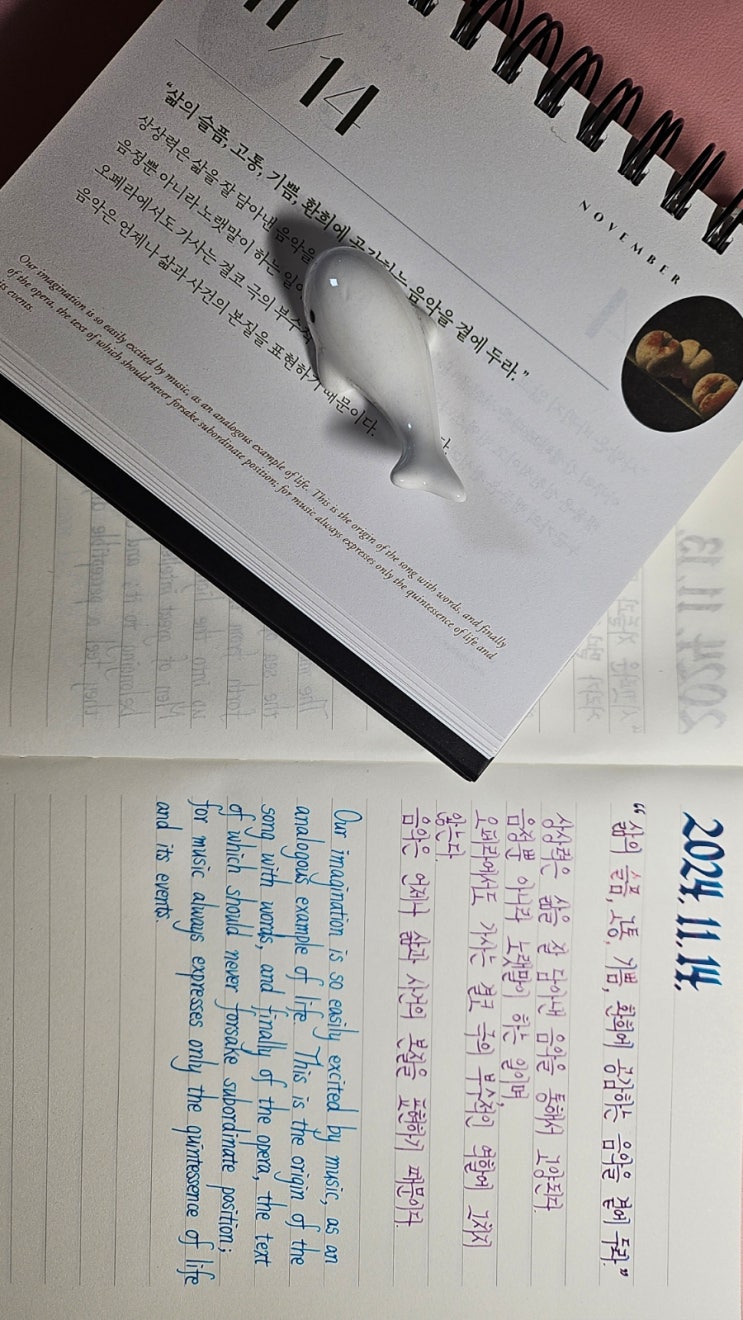 11/14
NOVEMBER
“삶의 슬픔, 고통, 기쁨, 환희에 공감하는 음악을 곁에 두라.”
상상력은 삶을 잘 담아낸 음악을
음정뿐 아니라 노랫말이 하는
오페라에서도 가사는 결코 극의
음악은 언제나 삶과 사건의 본질을 표현하기 때문이다.
Our imagination is so easily excited by music, as an analogous example of life. This is the origin of the song with words, and finally
of the opera, the text of which should never forsake subordinate position; for music always expresses only the quintessence of life and
its events
2024. 11. 14.
“삶의 슬픔, 고통, 기쁨, 환희에 공감하는 음악을 곁에 두라.”
상상력은 삶을 잘 담아낸 음악을 통해서 고양된다.
음정뿐 아니라 노랫말이 하는 일이며,
오페라에서도 가사는 결코 극의 부수적인 역할에 그치지
않는다.
음악은 언제나 삶과 사건의 본질을 표현하기 때문이다.
Our imagination is so easily excited by music, as an
analogous example of life. This is the origin of the
song with words, and finally of the opera, the text
of which should never forsake subordinate position;
for music always expresses only the quintessence of life
and its events.